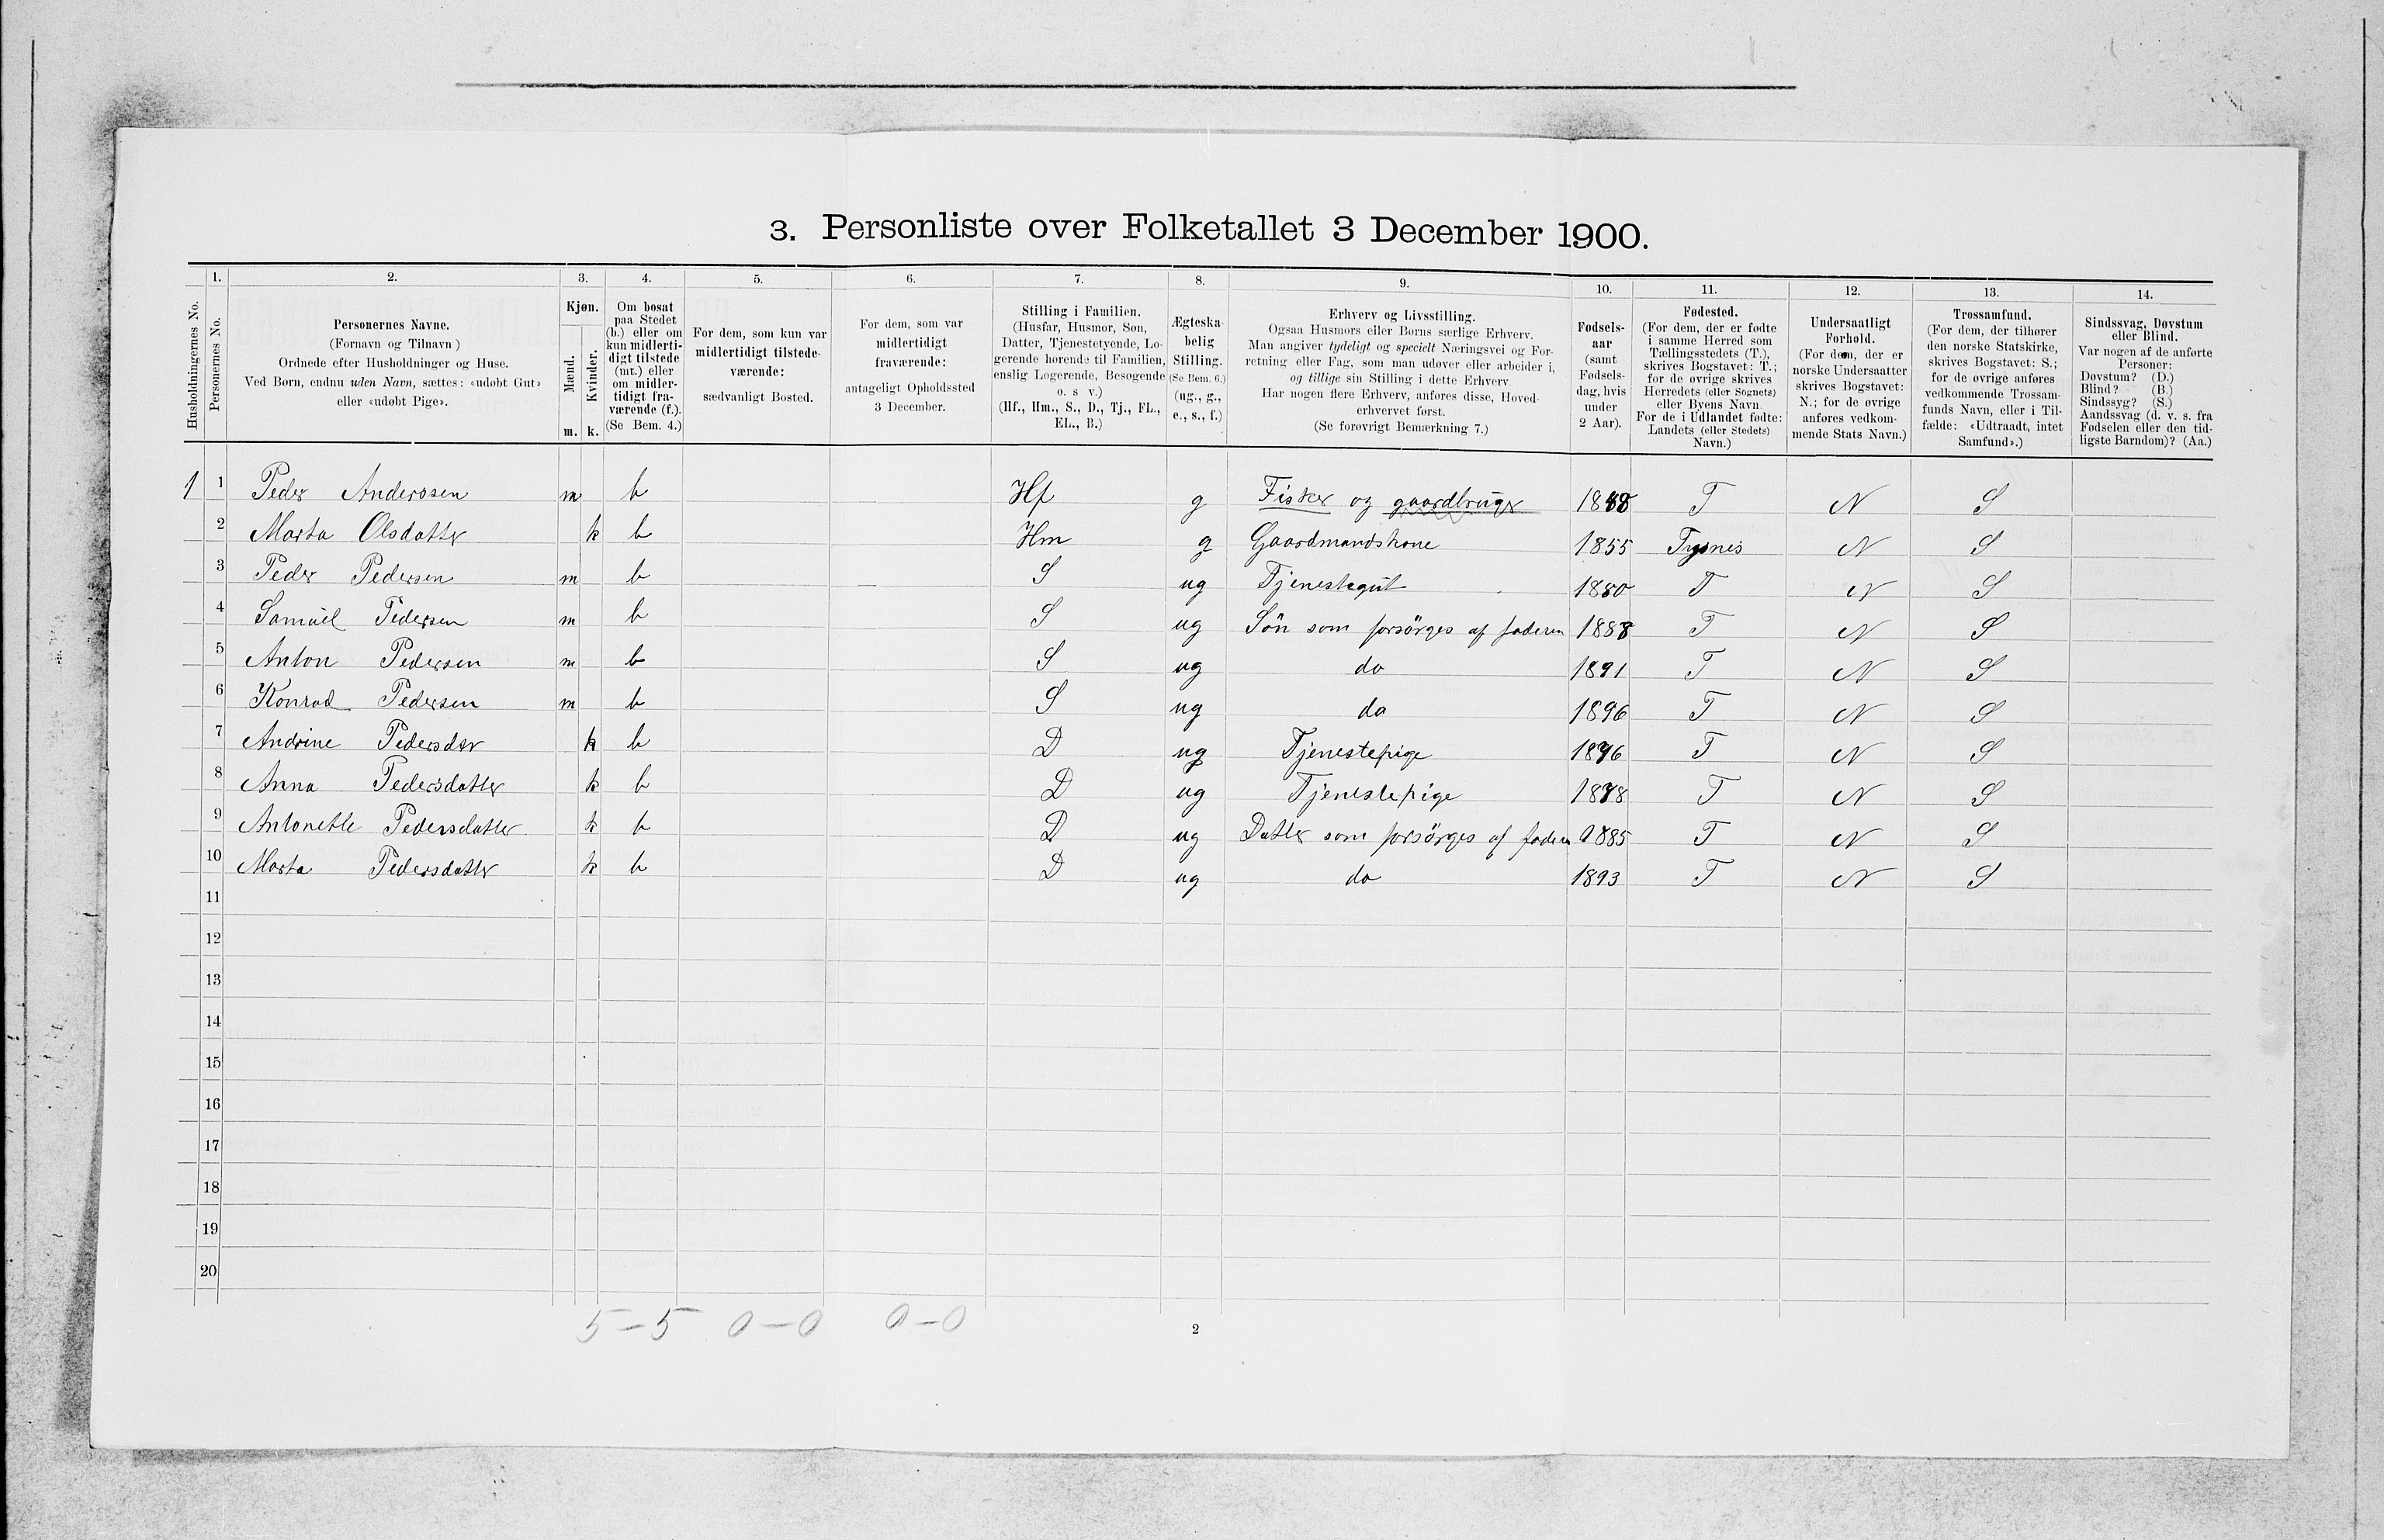 3. Personliste over Folketallet 3 December 1900.
1. 2. 3. 4. 5. 6. 7. 8. 9. 10. 11. 12. 13. 14.
Husholdningernes No.
Personernes No.
Personernes Navne.
(Fornavn og Tilnavn)
Ordnede efter Husholdninger og Huse.
Ved Børn, endnu uden Navn, sættes: «udøbt Gut»
eller «udøbt Pige».
Kjøn.
Mænd.
Kvinder.
m. k.
Om bosat
paa Stedet
(b.) eller om
kun midlerti-
digt tilstede
(mt.) eller
om midler-
tidigt fra-
værende (f.).
(Se Bem. 4.)
For dem, som kun var
midlertidigt tilstede-
værende:
sædvanligt Bosted.
For dem, som var
midlertidigt
fraværende:
antageligt Opholdssted
3 December.
Stilling i Familien.
(Husfar, Husmor, Søn,
Datter, Tjenestetyende, Lo-
gerende hørende til Familien,
enslig Logerende, Besøgende
o. s v.)
(Hf., Hm., S., D., Tj., FL.,
EL., B.)
Ægteska-
belig
Stilling.
(Se Bem. 6.)
(ug., g.,
e., s., f.)
Erhverv og Livsstilling.
Ogsaa Husmors eller Børns særlige Erhverv.
Man angiver tydeligt og specielt Næringsvei og For-
retning eller Fag, som man udøver eller arbeider i,
og tillige sin Stilling i dette Erhverv.
Har nogen flere Erhverv, anføres disse, Hoved-
erhvervet først.
(Se forøvrigt Bemærkning 7.)
Fødsels-
aar
(samt
Fødsels-
dag, hvis
under
2 Aar).
Fødested.
(For dem, der er fødte
i samme Herred som
Tællingsstedets (T.),
skrives Bogstavet: T.;
for de øvrige skrives
Herredets (eller Sognets)
eller Byens Navn.
For de i Udlandet fødte:
Landets (eller Stedets)
Navn.)
Undersaatligt
Forhold.
(For dem, der er
norske Undersaatter
skrives Bogstavet:
N.; for de øvrige
anføres vedkom-
mende Stats Navn.)
Trossamfund.
(For dem, der tilhører
den norske Statskirke,
skrives Bogstavet: S.;
for de øvrige anføres
vedkommende Trossam-
funds Navn, eller i Til-
fælde: «Udtraadt, intet
Samfund».)
Sindssvag, Døvstum
eller Blind.
Var nogen af de anførte
Personer:
Døvstum? (D.)
Blind? (B.)
Sindssyg? (S.)
Aandssvag (d. v. s. fra
Fødselen eller den tid-
ligste Barndom)? (Aa.)
1 1 Peder Anderssen m b Hf g Fisker og gaardbruger 1848 T N S
2 Marta Olsdatter k b Hm g Gaardmandskone 1855 Tysnes N S
3 Peder Pedersen m b S ug Tjenestegut 1880 T N S
4 Samuel Pedersen m b S ug Sön som forsörges af faderen 1888 T N S
5 Anton Pedersen m b S ug do 1891 T N S
6 Konrad Pedersen m b S ug do 1896 T N S
7 Andrine Pedersdtr k b D ug Tjenestepige 1876 T N S
8 Anna Pedersdatter k b D ug Tjenestepige 1878 T N S
9 Antonette Pedersdatter k b D ug Datter som forsörges af faderen 1885 T N S
10 Marta Pedersdatter k b D ug do 1893 T N S
11
12
13
14
15
16
17
18
19
20
5-5 0-0 0-0
2